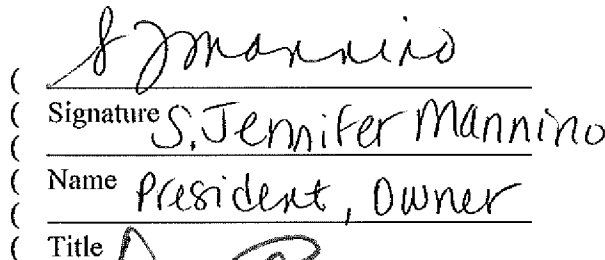 ( S J Mannino
( Signature S. Jennifer Mannino
(
( Name President, Owner
(
( Title